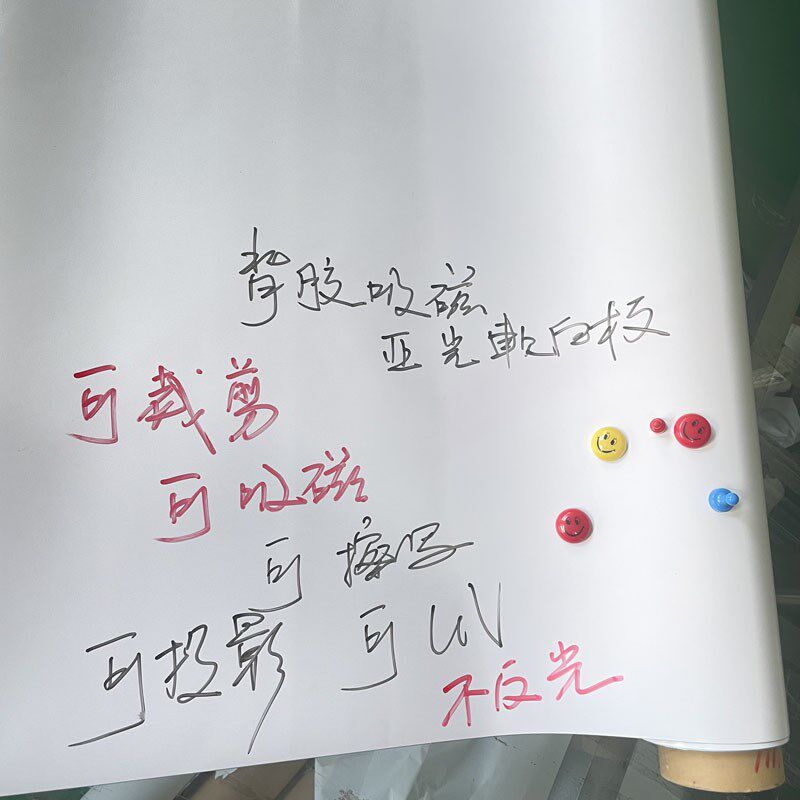 背胶吸磁
亚光软白板
可裁剪
可吸磁
可擦写
可投影 可UV
不反光